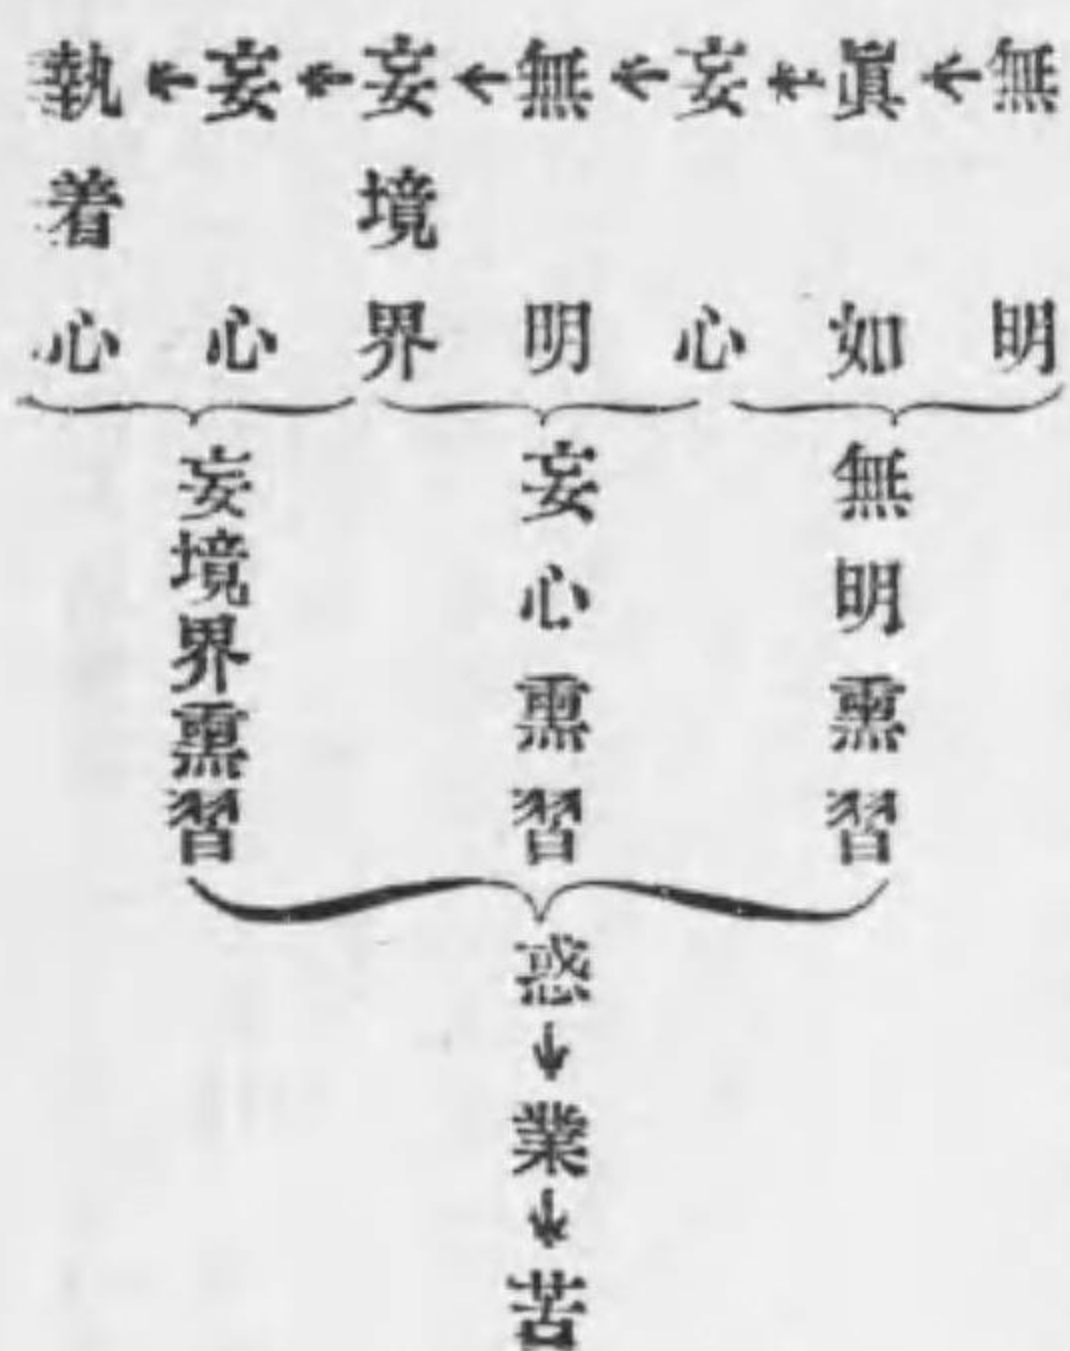 無明
←
眞如
←
妄心
←
無明
←
妄境界
←
妄心
←
執着心
無明熏習
妄心熏習
妄境界熏習
惑
↓
業
↓
苦